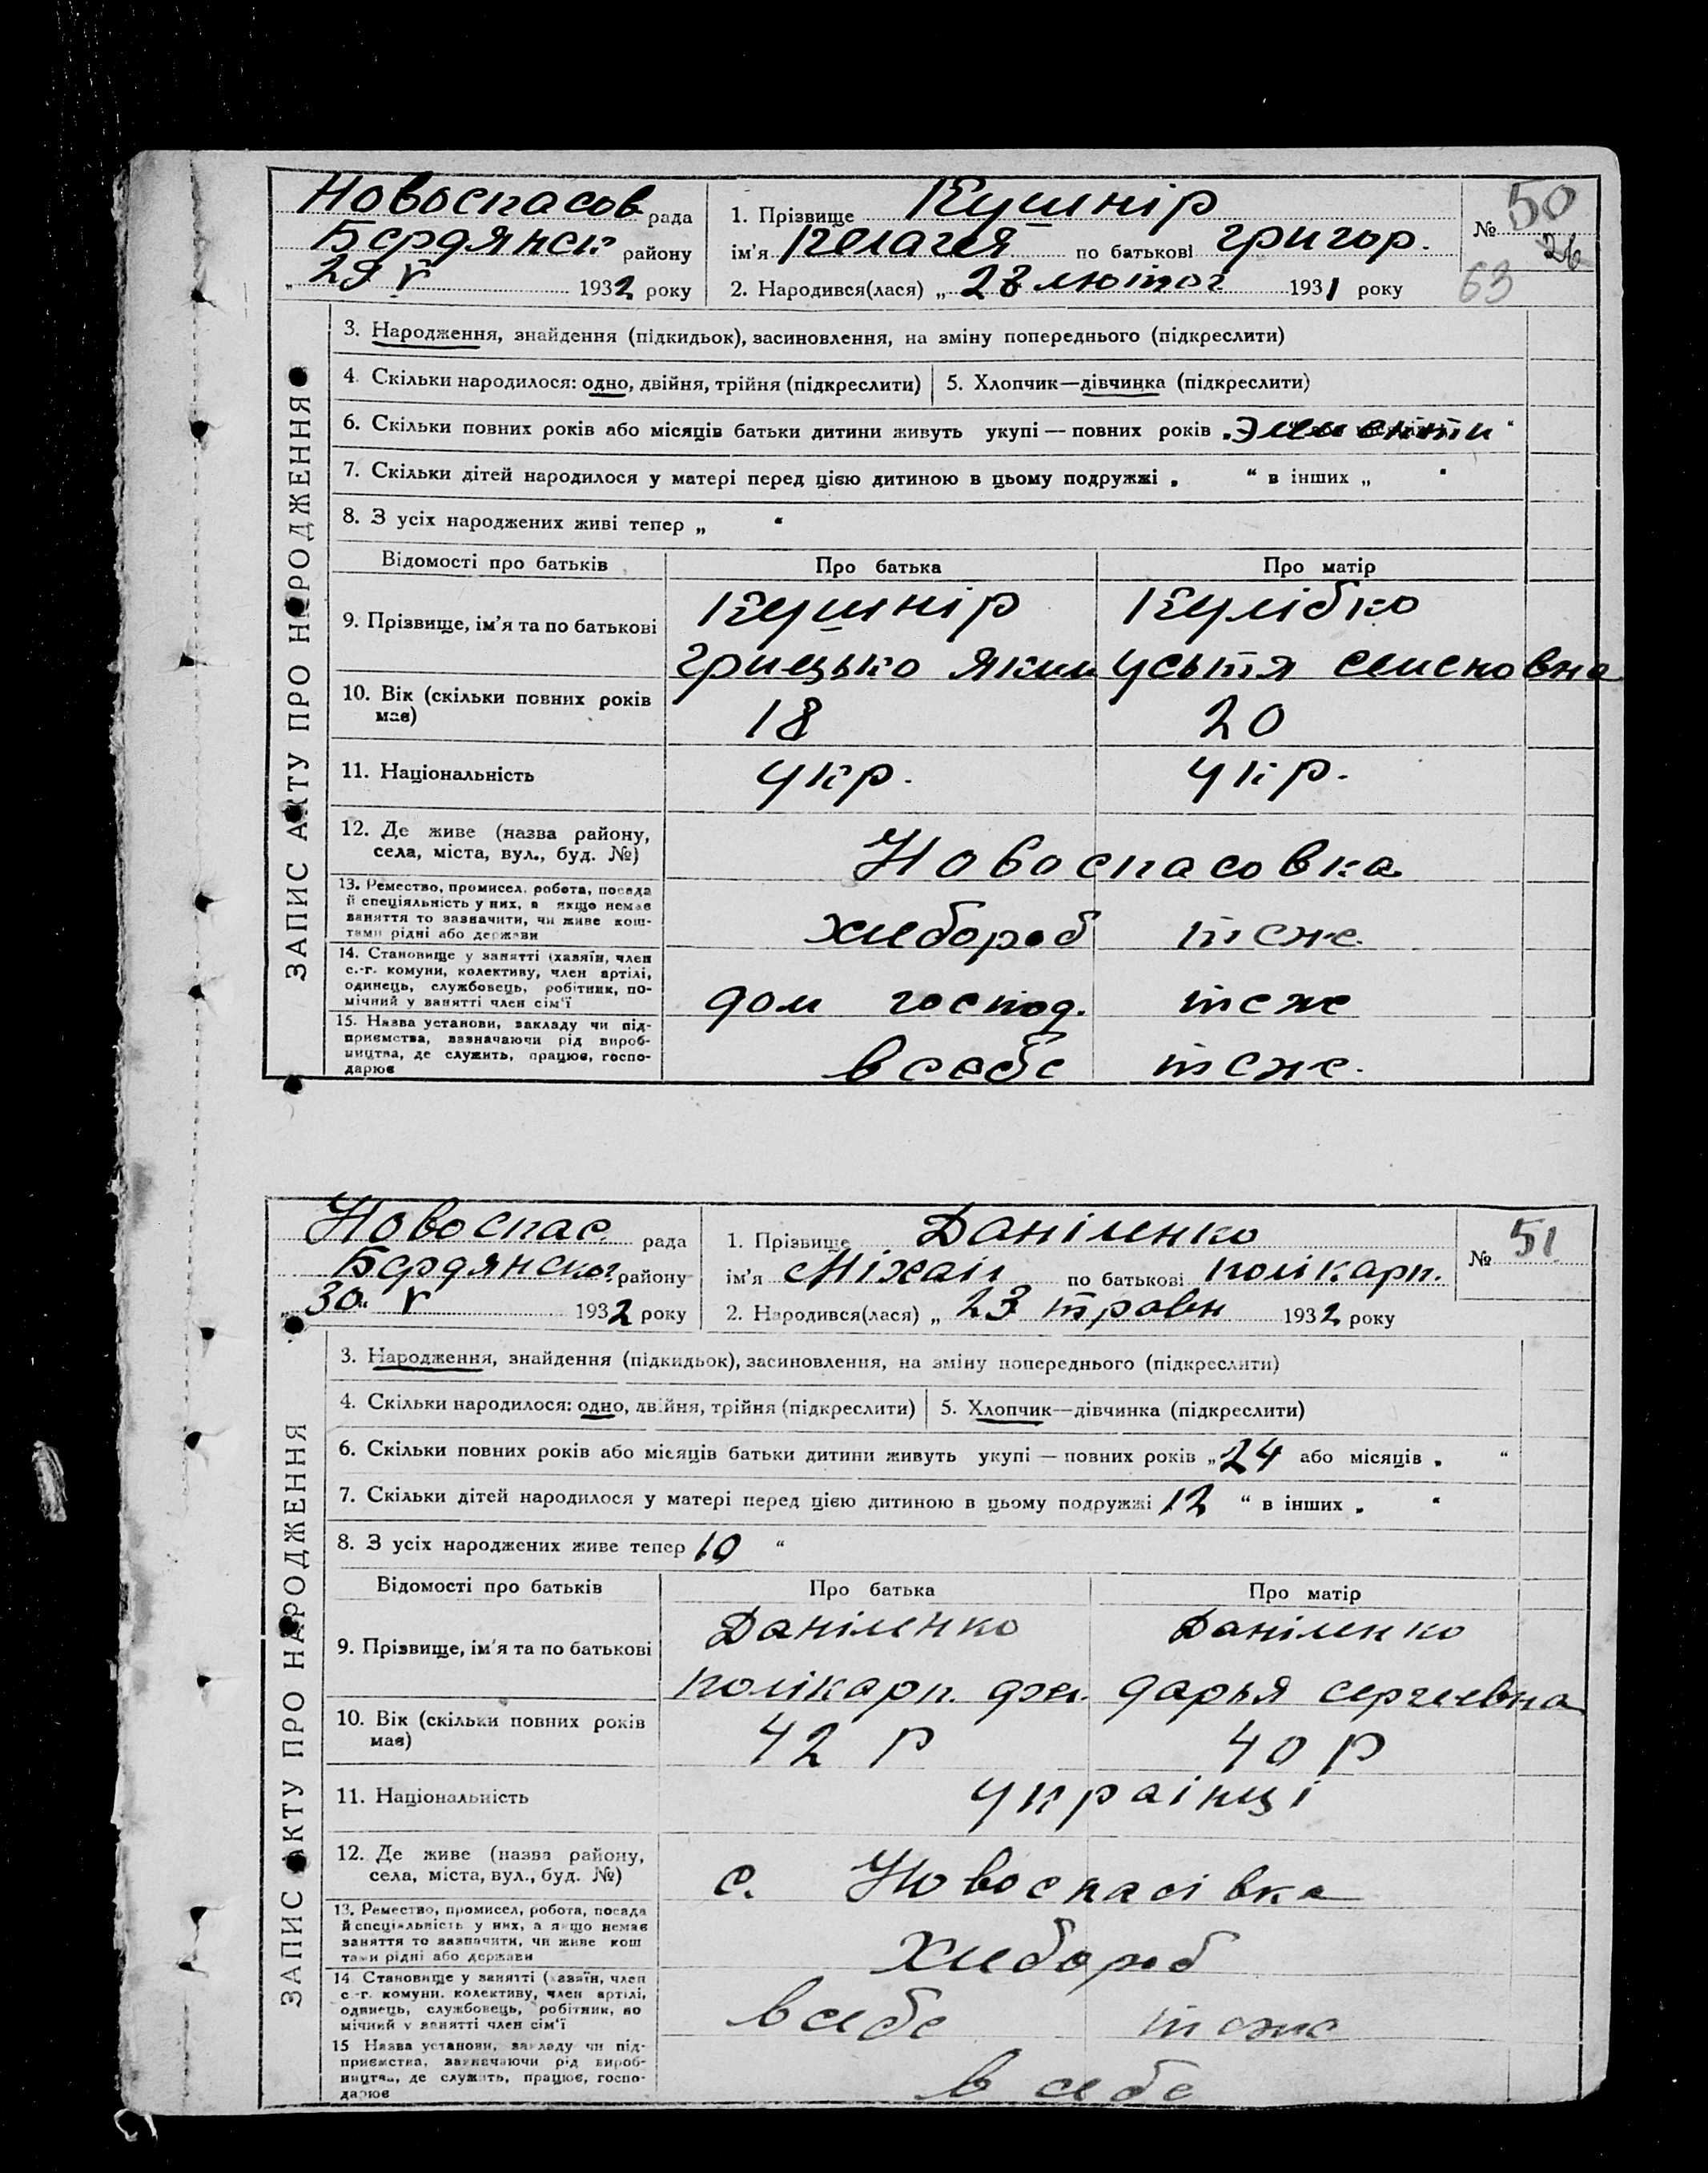 ЗАПИС АКТУ ПРО НАРОДЖЕННЯ
Новоспасов рада
Бердянськ району
„ 29 V 1932 року
1. Прізвище Кушнір
ім'я Пелагея по батькові григор.
2. Народився(лася) „ 28 лютого 1931 року
№ 50
26
63
3. Народження, знайдення (підкидьок), засиновлення, на зміну попереднього (підкреслити)
4. Скільки народилося: одно, двійня, трійня (підкреслити)
5. Хлопчик—дівчинка (підкреслити)
6. Скільки повних років або місяців батьки дитини живуть укупі — повних років „Элементи“
7. Скільки дітей народилося у матері перед цією дитиною в цьому подружжі „ “ в інших „ “
8. З усіх народжених живі тепер „ “
Відомості про батьків Про батька Про матір
9. Прізвище, ім'я та по батькові
Кушнір Кулібко
грицько Яким Устя
10. Вік (скільки повних років має)
18 20
11. Національність укр. укр.
12. Де живе (назва району, села, міста, вул., буд. №)
Новоспасовка
13. Ремество, промисел, робота, посада
й спеціяльність у них, а якщо немає
заняття то зазначити, чи живе кош-
тами рідні або держави
хлебороб теже
14. Становище у занятті (хазяїн, член
с.-г. комуни, колективу, член артілі,
одинець, службовець, робітник, по-
мічний у занятті член сім'ї
дом господ. теже
15. Назва установи, закладу чи під-
приємства, зазначаючи рід вироб-
ництва, де служить, працює, госпо-
дарює
в себе теже.
ЗАПИС АКТУ ПРО НАРОДЖЕННЯ
Новоспас. рада
Бердянског району
„30“ V 1932 року
1. Прізвище Даніленко
ім'я Міхаіл по батькові полікарп.
2. Народився(лася) „ 23 травн 1932 року
№ 51
3. Народження, знайдення (підкидьок), засиновлення, на зміну попереднього (підкреслити)
4. Скільки народилося: одно, двійня, трійня (підкреслити)
5. Хлопчик—дівчинка (підкреслити)
6. Скільки повних років або місяців батьки дитини живуть укупі — повних років „24 або місяців „ “
7. Скільки дітей народилося у матері перед цією дитиною в цьому подружжі 12 “ в інших „ “
8. З усіх народжених живе тепер 10 “
Відомості про батьків Про батька Про матір
9. Прізвище, ім'я та по батькові
Даніленко Даніленко
полікарп. дарья сергеевна
10. Вік (скільки повних років має)
42 р 40 р
11. Національність українці
12. Де живе (назва району, села, міста, вул., буд. №)
с. Новоспасівка
13. Ремество, промисел, робота, посада
й спеціяльність у них, а якщо немає
заняття то зазначити, чи живе кош
тами рідні або держави
хлебороб
14. Становище у занятті (хазяїн, член
с-г. комуни. колективу, член артілі,
одинець, службовець, робітник, по
мічний у занятті член сім'ї
в себе теже
15 Назва установи, закладу чи під-
приємства, зазначаючи рід вироб-
ництва, де служить, працює, госпо-
дарює
в себе